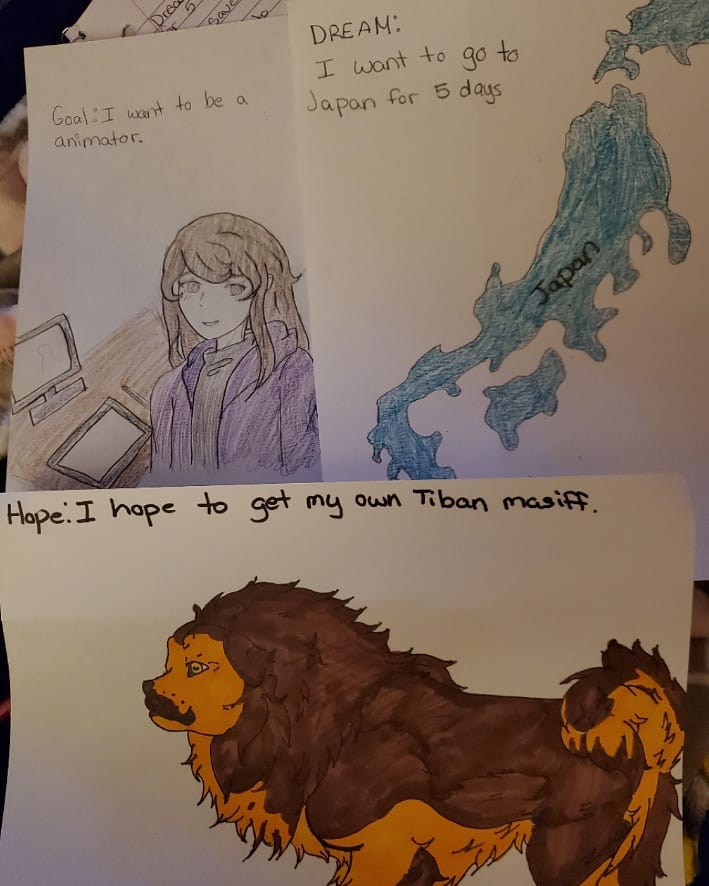 Goal: I want to be a
animator.
DREAM:
I want to go to
Japan for 5 days
Japan
Hope: I hope to get my own Tiban masiff.